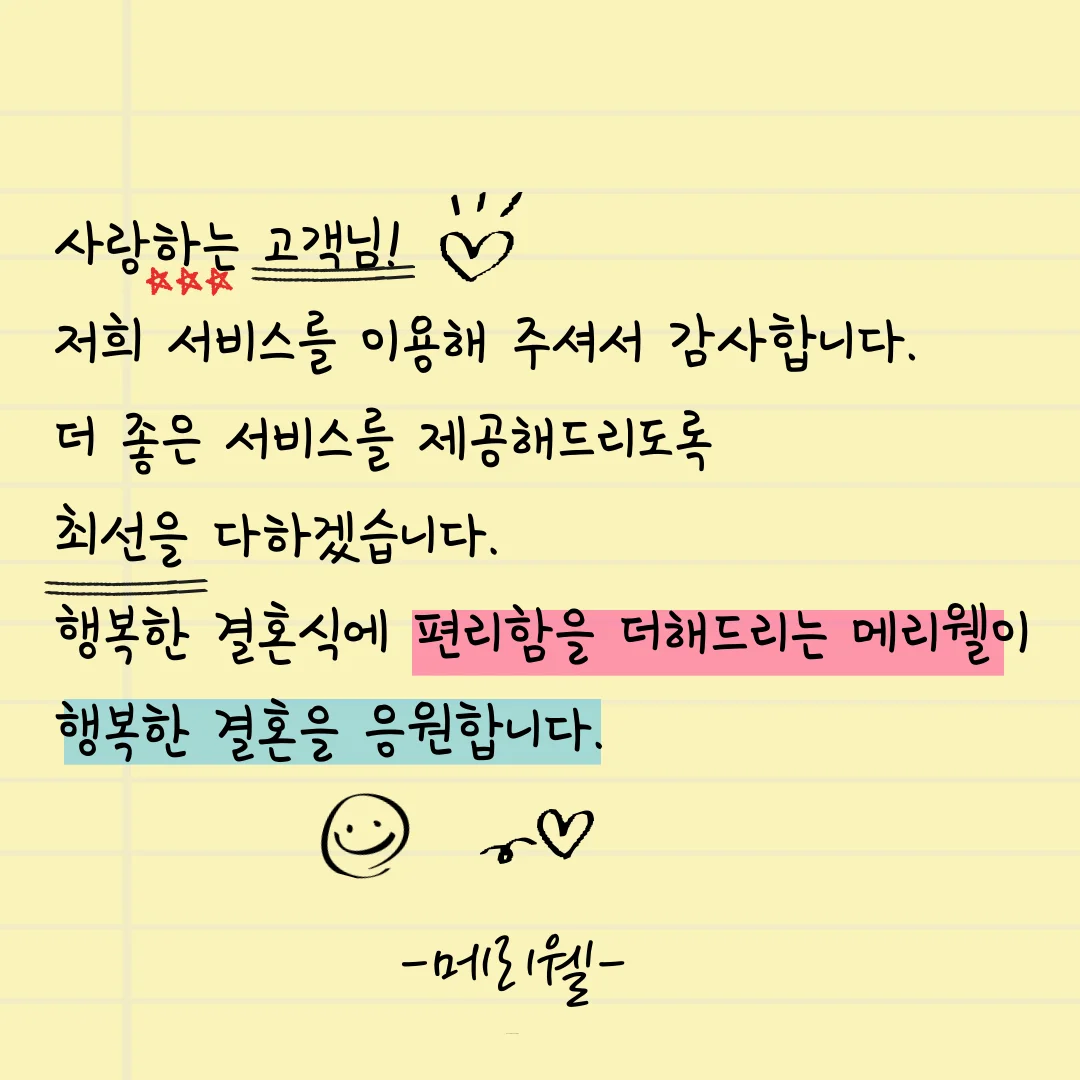 사랑하는 고객님!
저희 서비스를 이용해 주셔서 감사합니다.
더 좋은 서비스를 제공해드리도록
최선을 다하겠습니다.
행복한 결혼식에 편리함을 더해드리는 메리웰이
행복한 결혼을 응원합니다.
-메리웰-